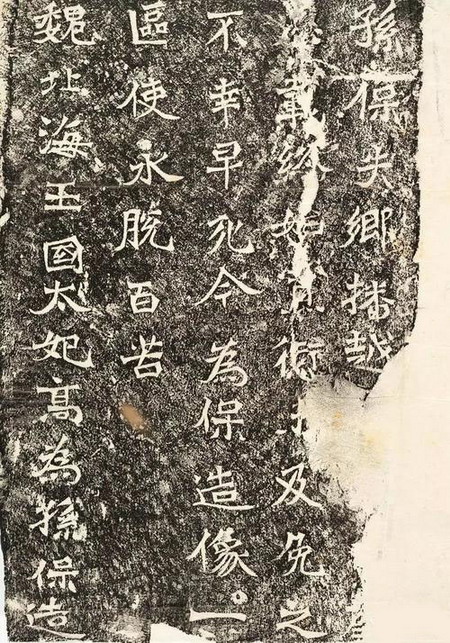 孫保失鄉播越
載衛未及免之
不幸早死今為保造像一
區使永脫百苦
魏北海王國太妃高為孫保造